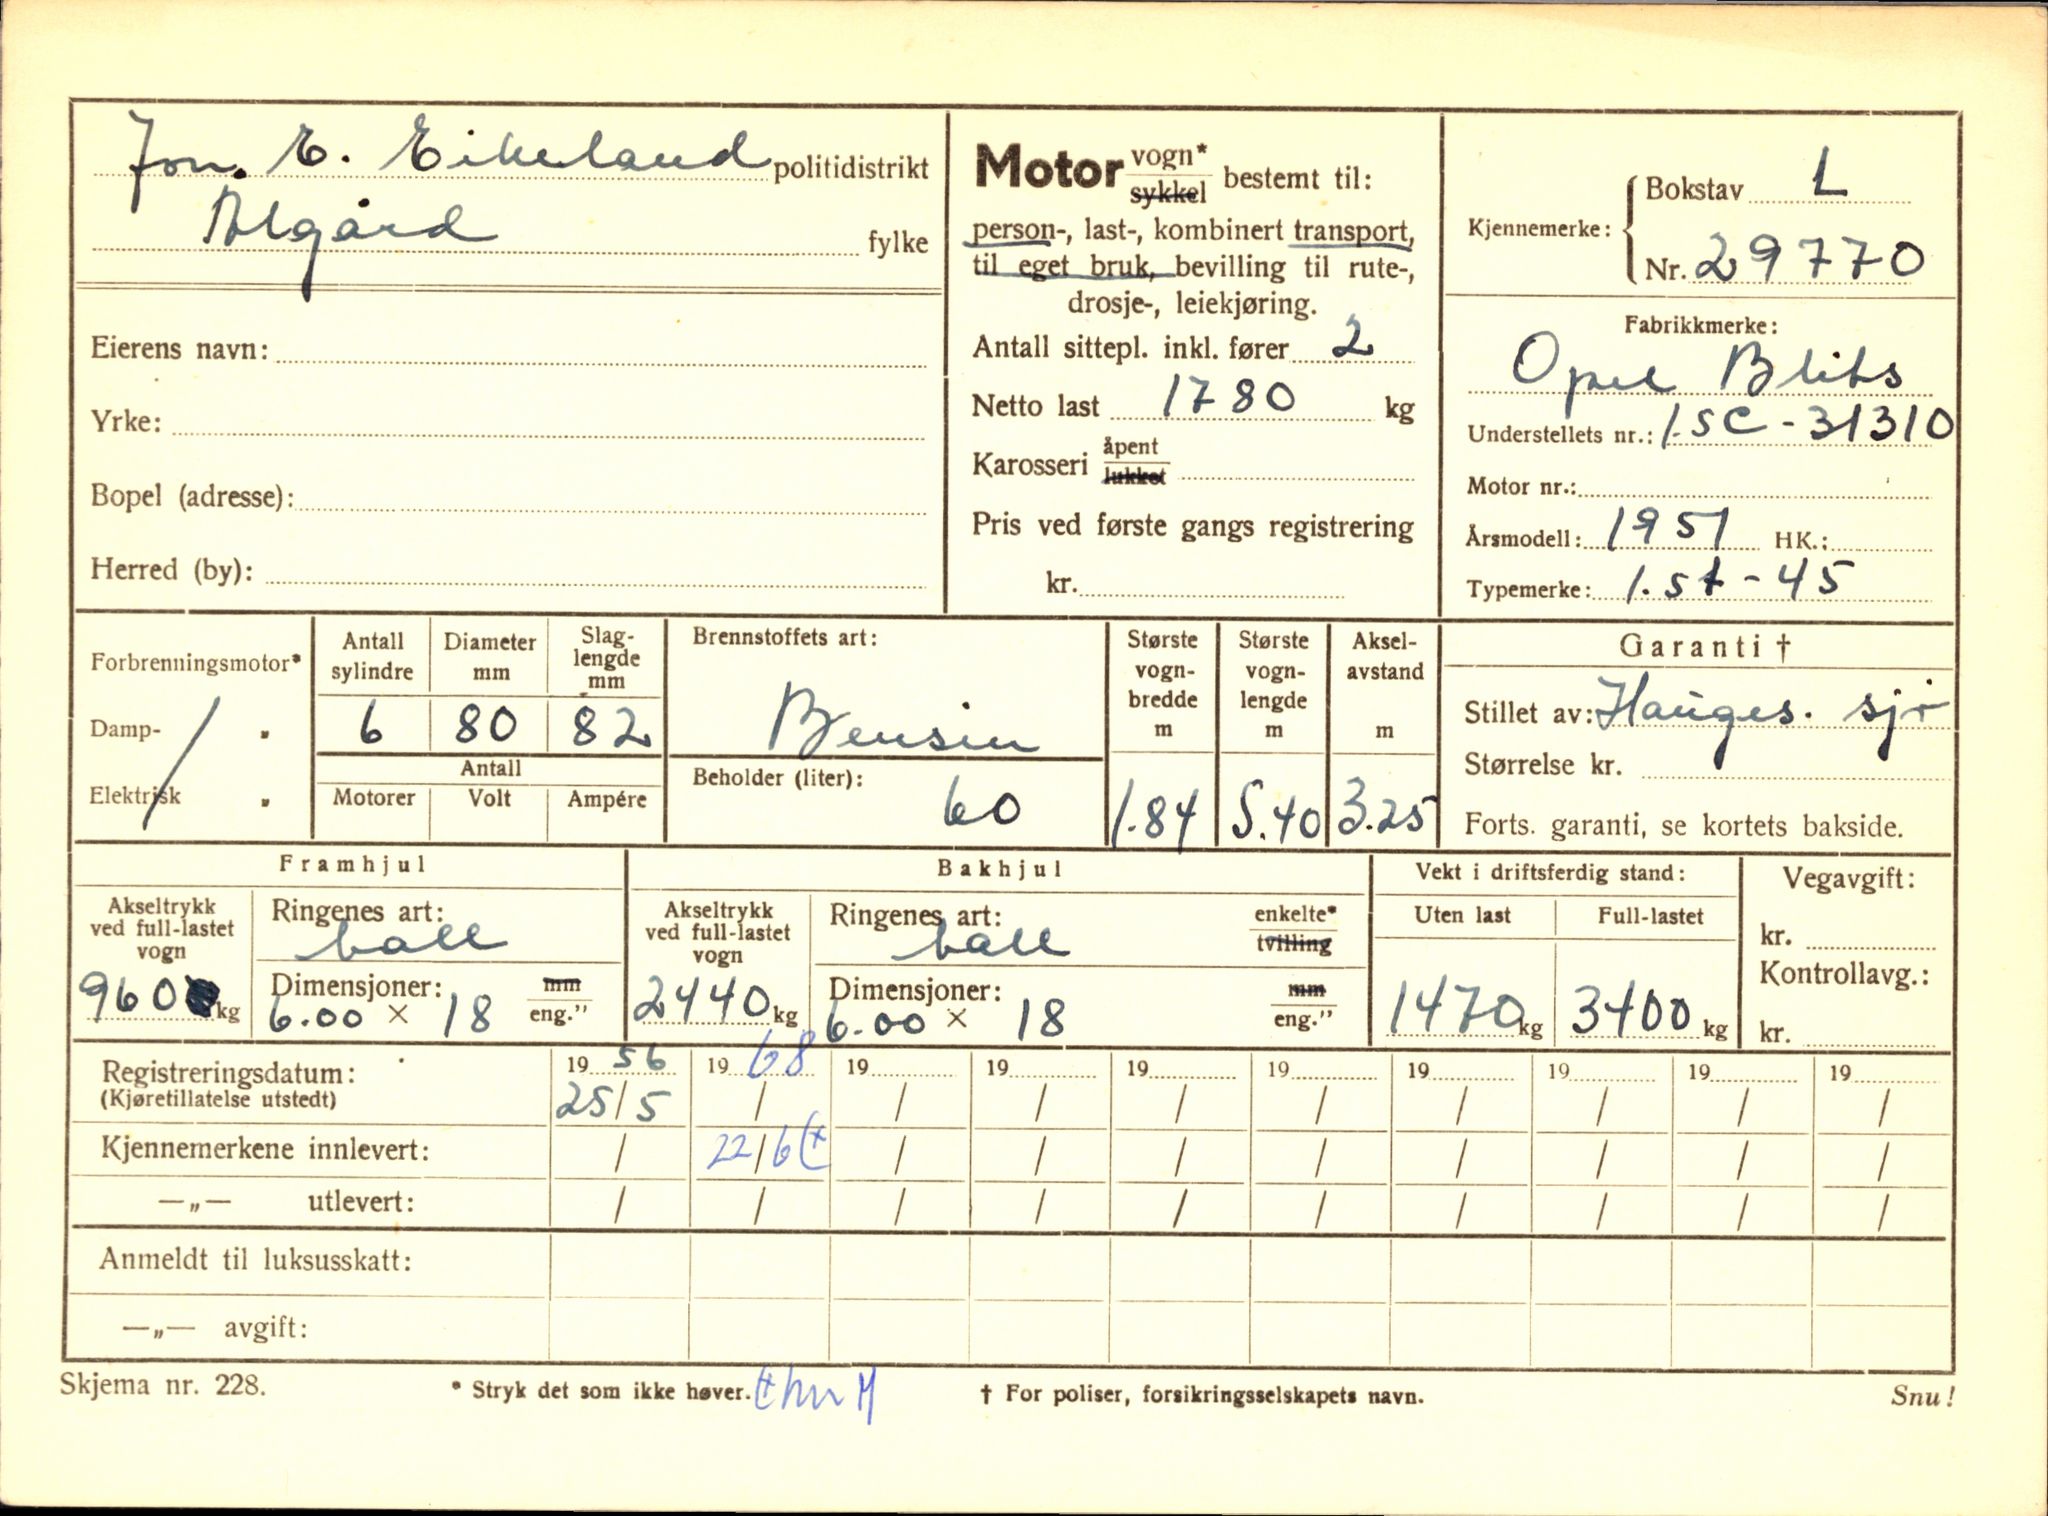 Jon. E. Eikeland politidistrikt
Ålgård fylke
Eierens navn:
Yrke:
Bopel (adresse):
Herred (by):
Motor vogn* sykkel bestemt til:
person-, last-, kombinert transport,
til eget bruk, bevilling til rute-,
drosje-, leiekjøring.
Antall sittepl. inkl. fører 2
Netto last 1780 kg
Karosseri åpent lukket
Pris ved første gangs registrering
kr.
Kjennemerke: Bokstav L
Nr. 29770
Fabrikkmerke:
Opel Blits
Understellets nr.: 1.5C-31310
Motor nr.:
Årsmodell: 1951 HK.:
Typemerke: 1.5t-45
Forbrenningsmotor*
Damp- "
Elektrisk "
Antall sylindre Diameter mm Slag-lengde mm
6 80 82
Antall
Motorer Volt Ampére
Brennstoffets art:
Bensin
Beholder (liter):
60
Største vogn-bredde m
1.84
Største vogn-lengde m
5.40
Aksel-avstand m
3.25
Garanti †
Stillet av: Hauges. sjø
Størrelse kr.
Forts. garanti, se kortets bakside.
Framhjul
Akseltrykk
ved full-lastet
vogn
960 kg
Ringenes art:
ball
Dimensjoner: mm
6.00 × 18 eng."
Bakhjul
Akseltrykk
ved full-lastet
vogn
2440 kg
Ringenes art: enkelte*
ball tvilling
Dimensjoner: mm
6.00 × 18 eng."
Vekt i driftsferdig stand:
Uten last Full-lastet
1470 kg 3400 kg
Vegavgift:
kr.
Kontrollavg.:
kr.
Registreringsdatum: 19 56 19 68 19 19 19 19 19 19 19 19
(Kjøretillatelse utstedt) 25/5 / / / / / / / / /
Kjennemerkene innlevert: / 22/6 (* / / / / / / / /
—„— utlevert: / / / / / / / / / /
Anmeldt til luksusskatt:
—„— avgift:
Skjema nr. 228. * Stryk det som ikke høver. † For poliser, forsikringsselskapets navn. Snu!